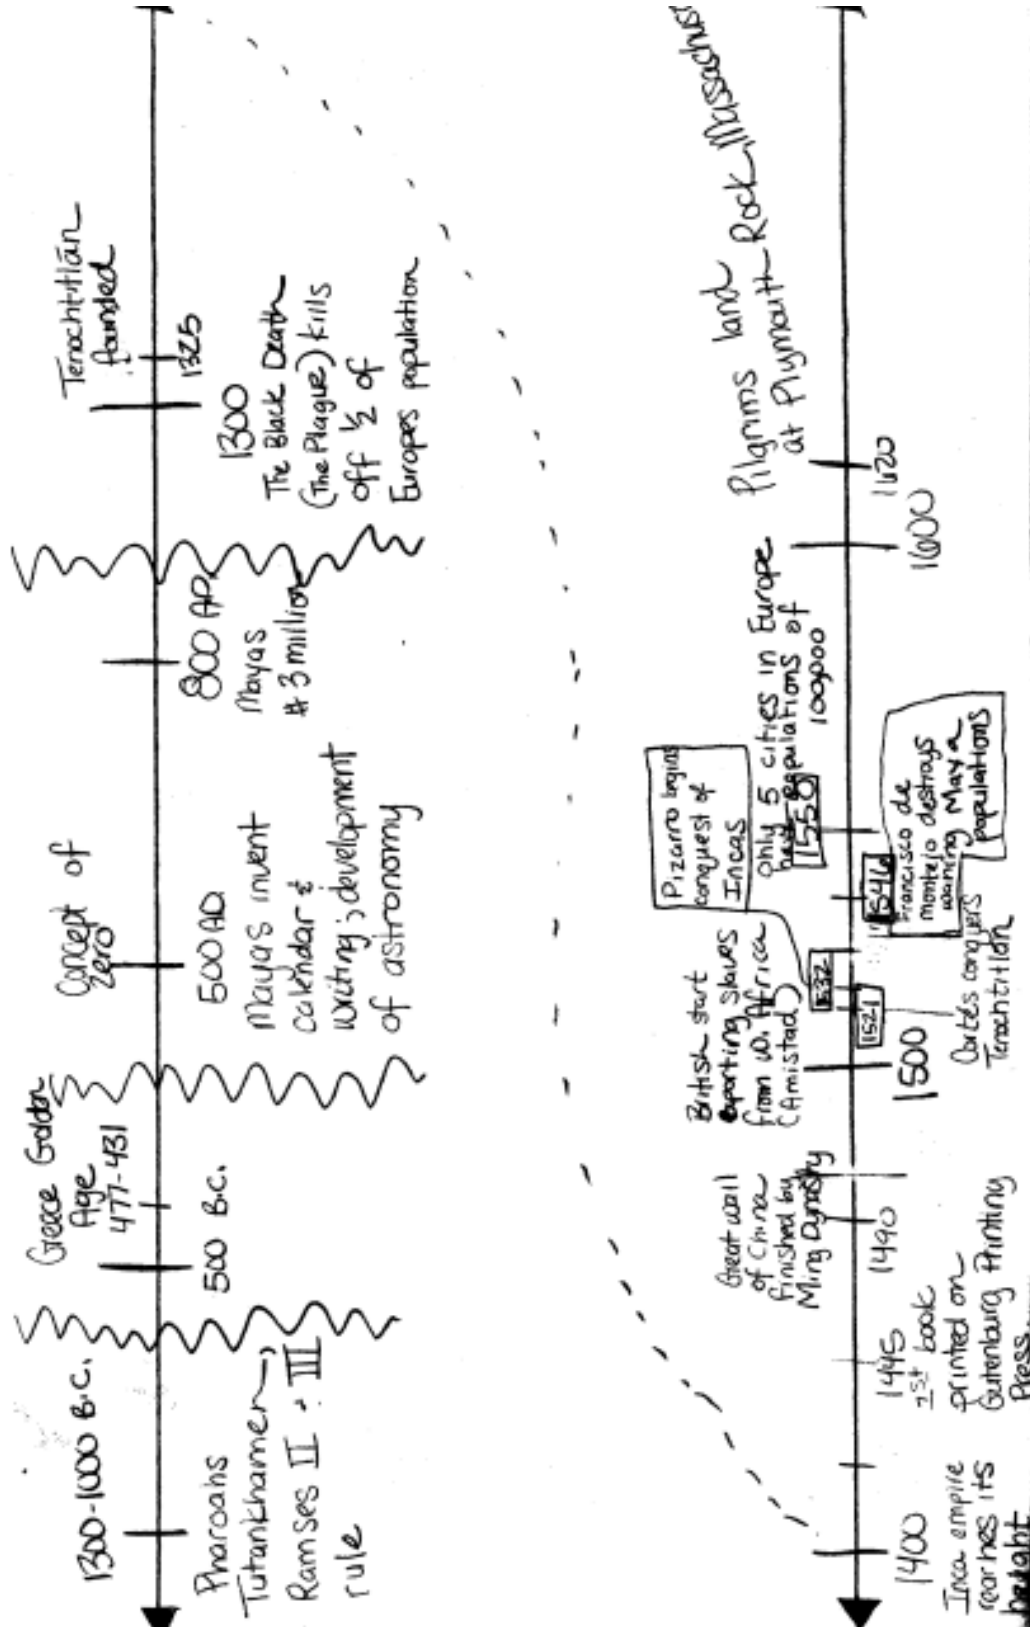 1300-1000 B.C.
Pharoahs
Tutankhamen,
Ramses II + III
rule
Greece Golden
Age
477-431
500 B.C.
Concept of
zero
500 A.D.
Mayas invent
calendar &
writing; development
of astronomy
800 A.D.
Mayas
# 3 million
Tenochtitlán
founded
1325
1300
The Black Death
(The Plague) kills
off 1/2 of
Europes population
1400
Inca empire
reaches its
height
1445
1st book
printed on
Gutenburg Printing
Press
Great wall
of China
finished by
Ming Dynasty
1490
British start
exporting slaves
from W. Africa
(Amistad)
1500
1521
Cortés conquers
Tenochtitlán
1532
Pizarro begins
conquest of
Incas
1546
Francisco de
montejo destroys
waning Maya
populations
only 5 cities in Europe
have populations of
100,000
1550
1600
Pilgrims land
at Plymouth Rock,
1620